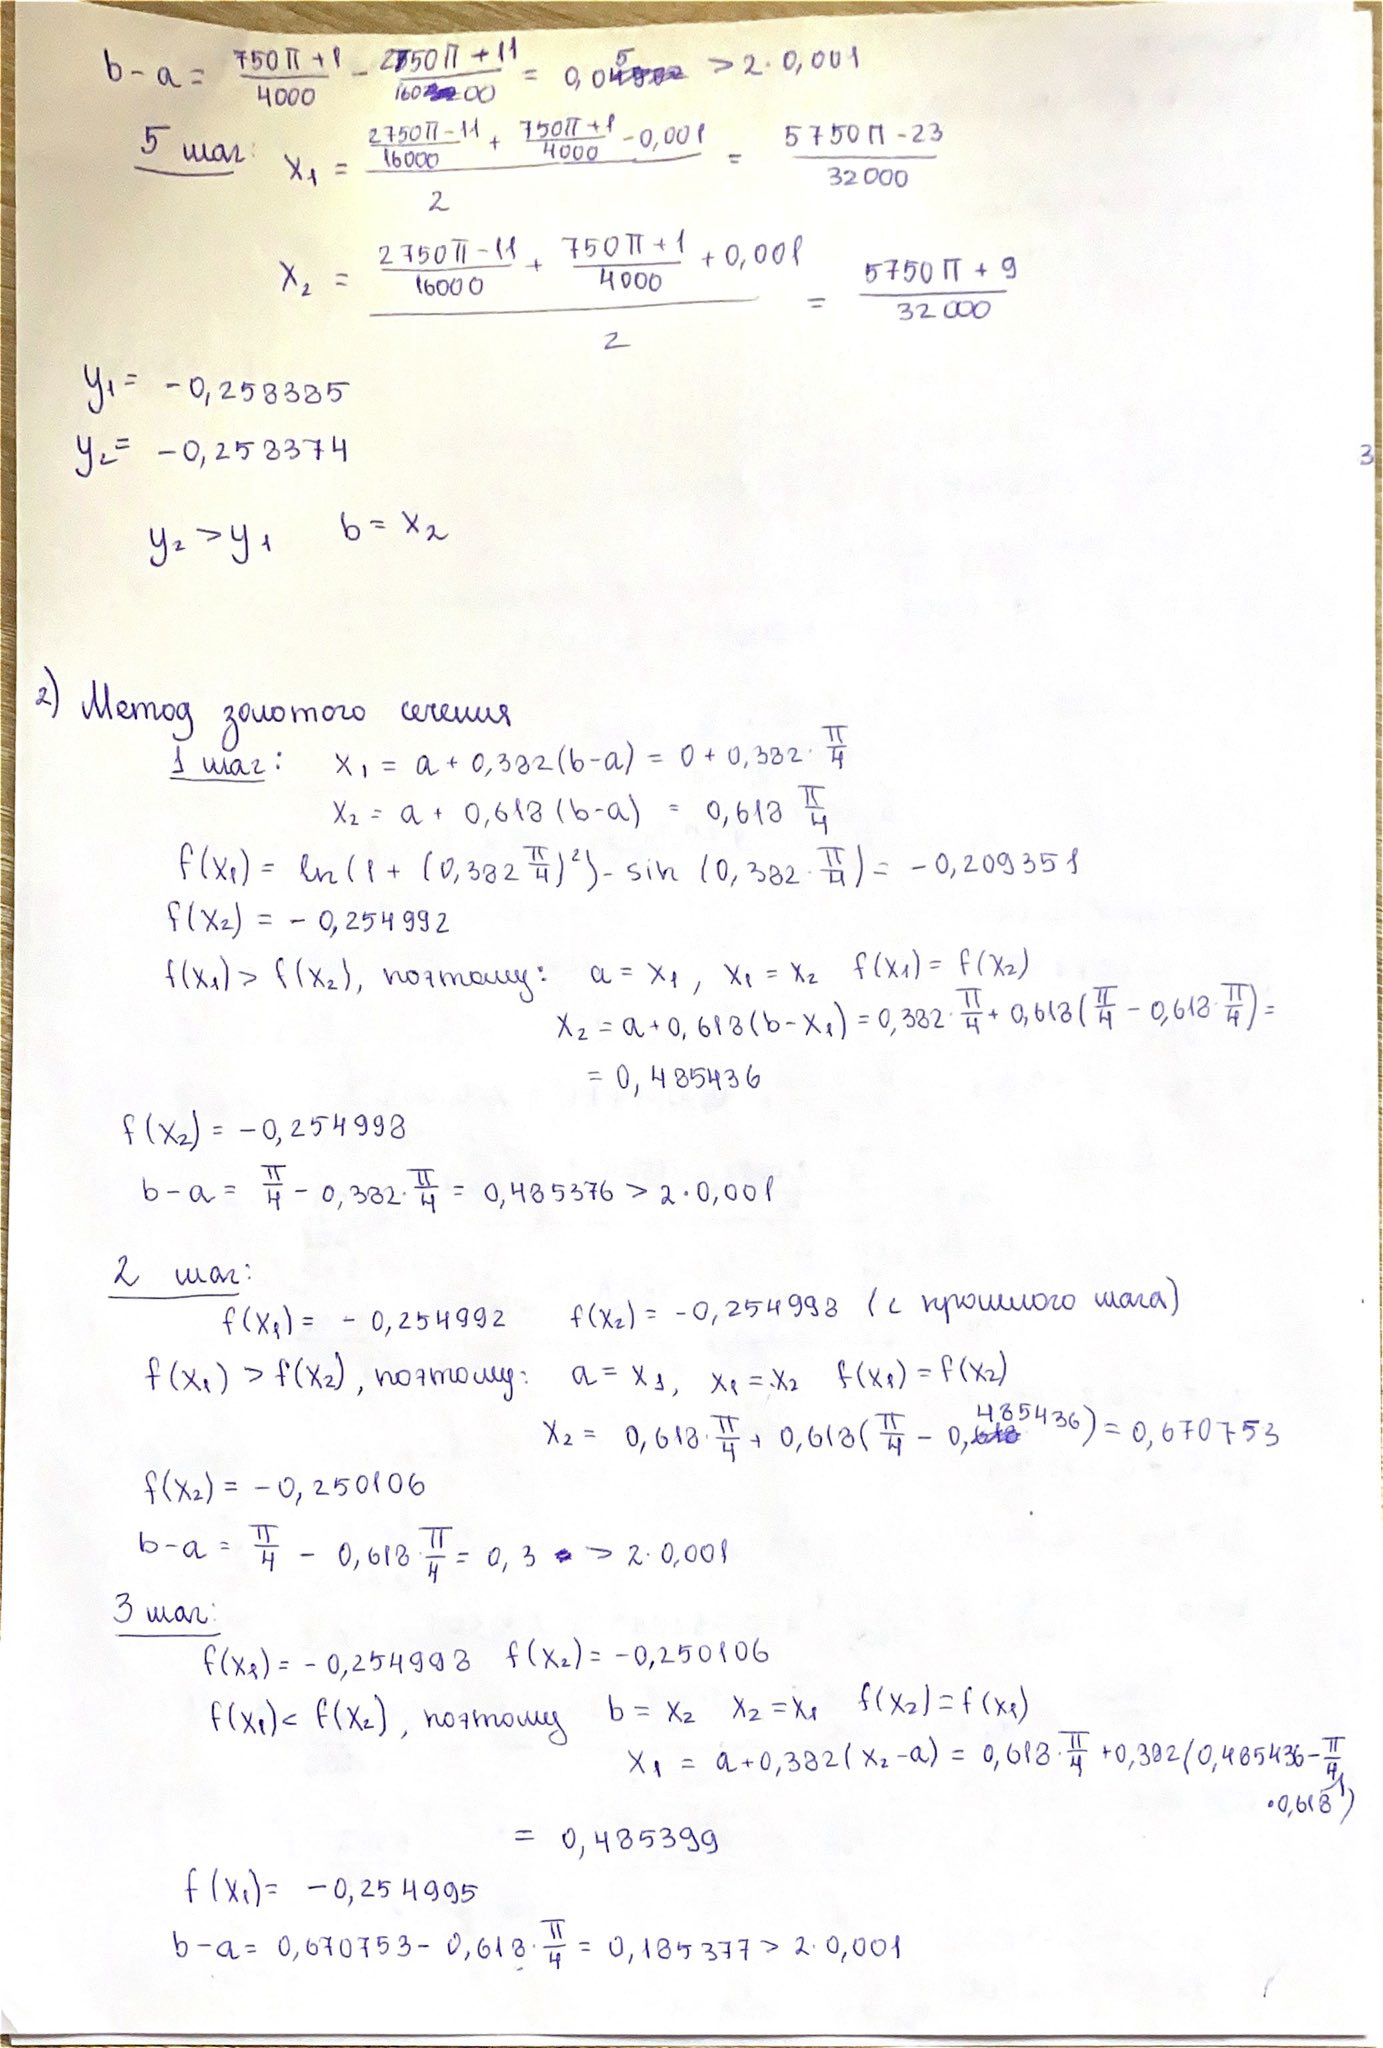 b-a = (750π+1)/4000 - (2750π+11)/16000 = 0,05 > 2·0,001
5 шаг: x₁ = ((2750π-11)/16000 + (750π+1)/4000 - 0,001)/2 = (5750π-23)/32000
x₂ = ((2750π-11)/16000 + (750π+1)/4000 + 0,001)/2 = (5750π+9)/32000
y₁ = -0,258385
y₂ = -0,258374
3
y₂ > y₁ b = x₂
2) Метод золотого сечения
1 шаг: x₁ = a + 0,382(b-a) = 0 + 0,382·π/4
x₂ = a + 0,618(b-a) = 0,618 π/4
f(x₁) = ln(1 + (0,382 π/4)²) - sin(0,382·π/4) = -0,209351
f(x₂) = -0,254992
f(x₁) > f(x₂), поэтому: a = x₁, x₁ = x₂ f(x₁) = f(x₂)
x₂ = a + 0,618(b-x₁) = 0,382·π/4 + 0,618(π/4 - 0,618·π/4) =
= 0,485436
f(x₂) = -0,254998
b-a = π/4 - 0,382·π/4 = 0,485376 > 2·0,001
2 шаг:
f(x₁) = -0,254992 f(x₂) = -0,254998 (с прошлого шага)
f(x₁) > f(x₂), поэтому: a = x₁, x₁ = x₂ f(x₁) = f(x₂)
x₂ = 0,618·π/4 + 0,618(π/4 - 0,485436) = 0,670753
f(x₂) = -0,250106
b-a = π/4 - 0,618·π/4 = 0,3 > 2·0,001
3 шаг:
f(x₁) = -0,254998 f(x₂) = -0,250106
f(x₁) < f(x₂), поэтому b = x₂ x₂ = x₁ f(x₂) = f(x₁)
x₁ = a + 0,382(x₂-a) = 0,618·π/4 + 0,382(0,485436 - π/4
·0,618)
= 0,485399
f(x₁) = -0,254995
b-a = 0,670753 - 0,618·π/4 = 0,185377 > 2·0,001